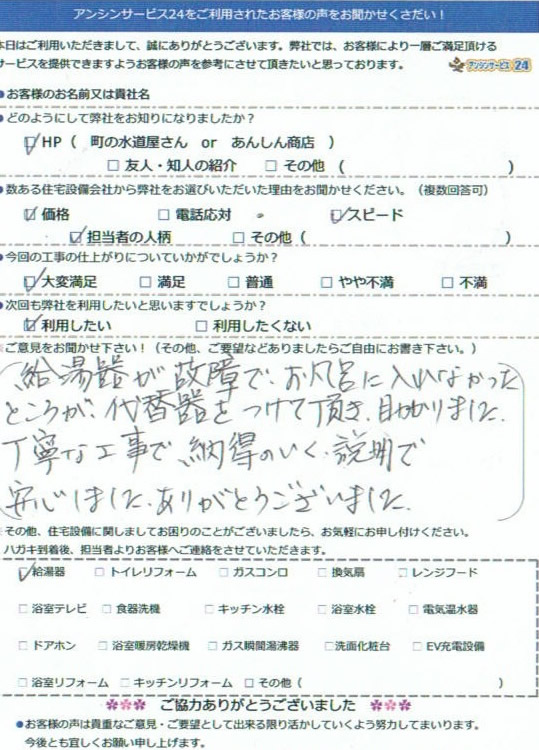 アンシンサービス24をご利用されたお客様の声をお聞かせくさだい！
本日はご利用いただきまして、誠にありがとうございます。弊社では、お客様により一層ご満足頂ける
サービスを提供できますようお客様の声を参考にさせて頂きたいと思っております。 アンシンサービス24
●お客様のお名前又は貴社名
●どのようにして弊社をお知りになりましたか？
☑HP（ 町の水道屋さん or あんしん商店 ）
□友人・知人の紹介 □その他（ ）
●数ある住宅設備会社から弊社をお選びいただいた理由をお聞かせください。（複数回答可）
☑価格 □電話応対 ☑スピード
☑担当者の人柄 □その他（ ）
●今回の工事の仕上がりについていかがでしょうか？
☑大変満足 □満足 □普通 □やや不満 □不満
●次回も弊社を利用したいと思いますでしょうか？
☑利用したい □利用したくない
※ご意見をお聞かせ下さい！（その他、ご要望などありましたらご自由にお書き下さい。）
給湯器が故障で、お風呂に入れなかった
ところが、代替器をつけて頂き、助かりました。
丁寧な工事で、納得のいく、説明で
安心しました。ありがとうございました。
※その他、住宅設備に関しましてお困りのことがございましたら、お気軽にお申し付けください。
ハガキ到着後、担当者よりお客様へご連絡をさせていただきます。
☑給湯器 □トイレリフォーム □ガスコンロ □換気扇 □レンジフード
□浴室テレビ □食器洗機 □キッチン水栓 □浴室水栓 □電気温水器
□ドアホン □浴室暖房乾燥機 □ガス瞬間湯沸器 □洗面化粧台 □EV充電設備
□浴室リフォーム □キッチンリフォーム □その他（ ）
ご協力ありがとうございました
●お客様の声は貴重なご意見・ご要望として出来る限り活かしていくよう努力してまいります。
今後とも宜しくお願い申し上げます。